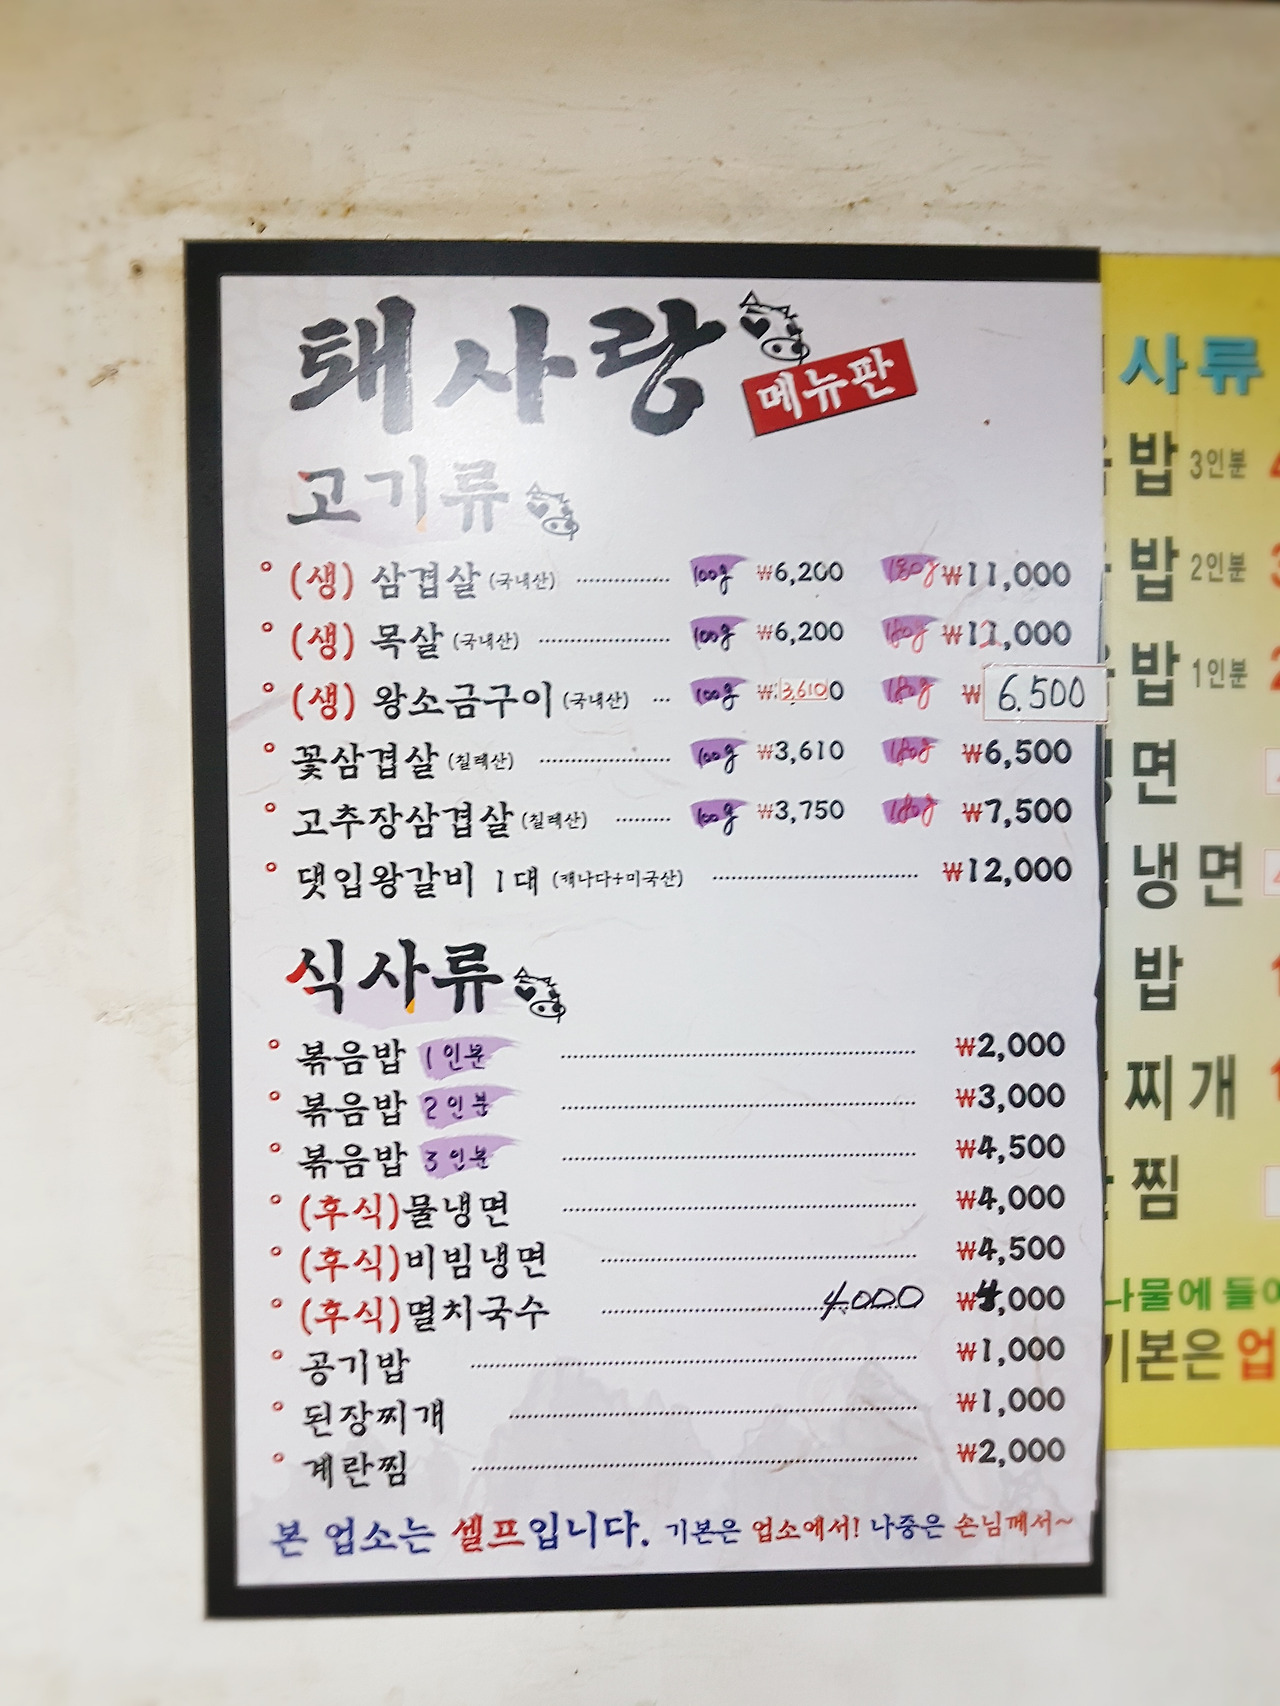 돼사랑
메뉴판
고기류
(생) 삼겹살 (국내산) 100g ₩6,200 180g ₩11,000
(생) 목살 (국내산) 100g ₩6,200 180g ₩11,000
(생) 왕소금구이 (국내산) 100g ₩3,610 180g ₩6,500
꽃삼겹살 (칠레산) 100g ₩3,610 180g ₩6,500
고추장삼겹살 (칠레산) 100g ₩3,750 180g ₩7,500
댓입왕갈비 1대 (캐나다+미국산) ₩12,000
식사류
볶음밥 1인분 ₩2,000
볶음밥 2인분 ₩3,000
볶음밥 3인분 ₩4,500
(후식)물냉면 ₩4,000
(후식)비빔냉면 ₩4,500
(후식)멸치국수 4,000 ₩4,000
공기밥 ₩1,000
된장찌개 ₩1,000
계란찜 ₩2,000
본 업소는 셀프입니다. 기본은 업소에서! 나중은 손님께서~
사류
밥 3인분
밥 2인분
밥 1인분
면
냉면
밥
찌개
찜
나물에
기본은